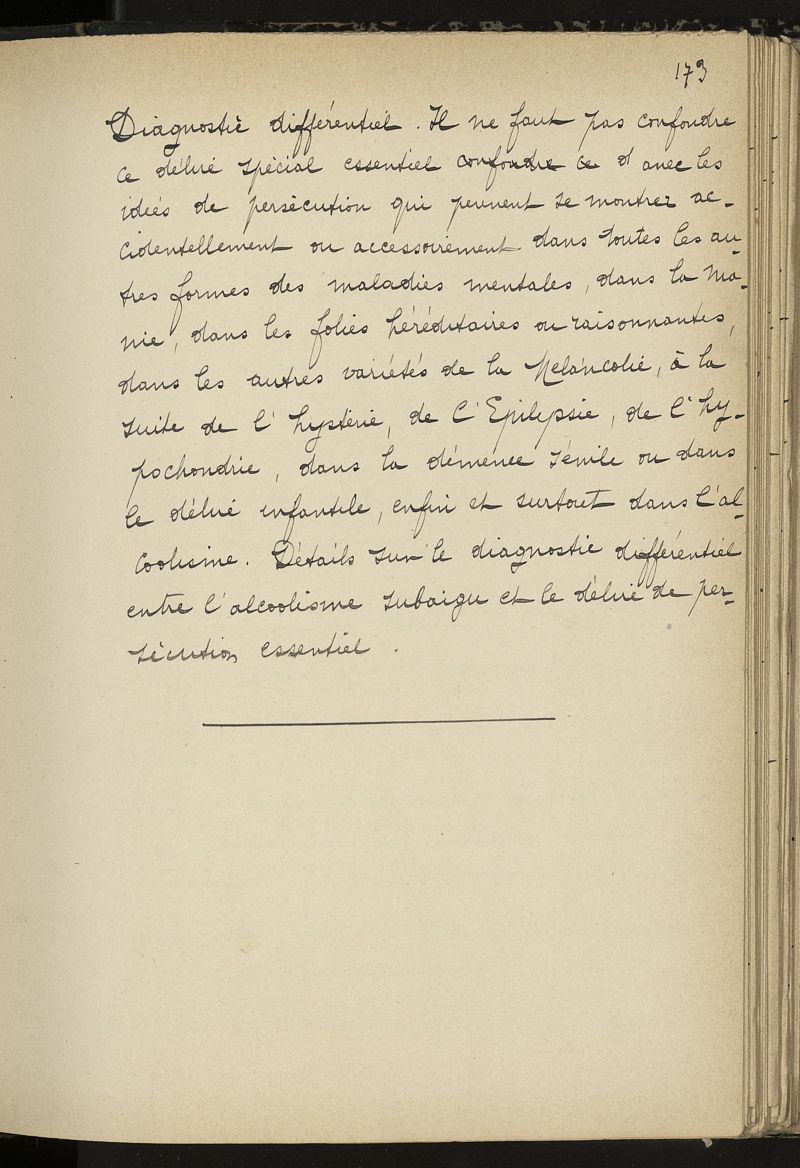 173
Diagnostic différentiel. Il ne faut pas confondre
ce délire spécial essentiel confondre ce d avec les
idées de persécution qui peuvent se montrer ac-
cidentellement ou accessoirement dans toutes les au-
tres formes des maladies mentales, dans la Ma-
nie, dans les folies héréditaires ou raisonnantes,
dans les autres variétés de la Mélancolie, à la
suite de l'hystérie, de l'Epilepsie, de l'hy-
pochondrie, dans la démence sénile ou dans
le délire infantile, enfin et surtout dans l'al-
coolisme. Détails sur le diagnostic différentiel
entre l'alcoolisme subaigu et le délire de per-
sécution essentiel.